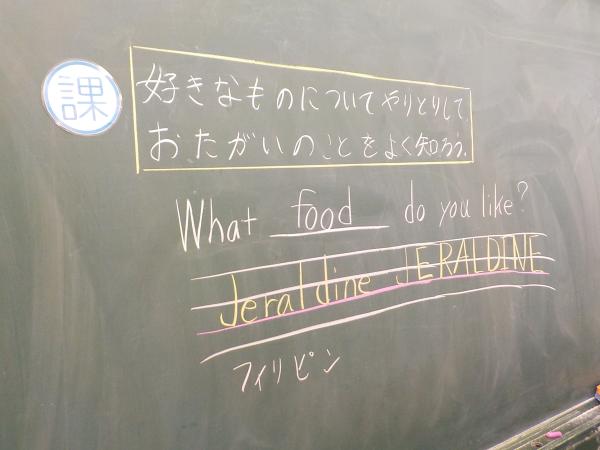 課
好きなものについてやりとりして、
おたがいのことをよく知ろう。
What food do you like?
Jeraldine JERALDINE
フィリピン